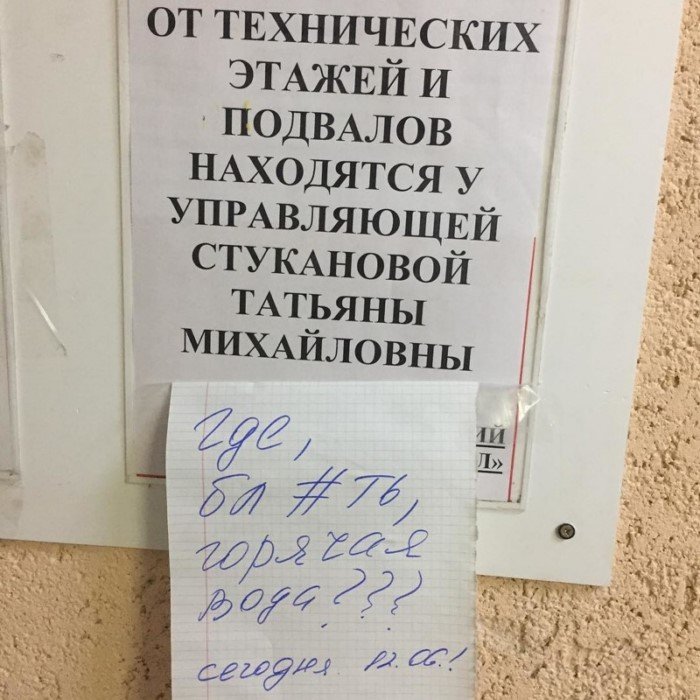 ОТ ТЕХНИЧЕСКИХ
ЭТАЖЕЙ И
ПОДВАЛОВ
НАХОДЯТСЯ У
УПРАВЛЯЮЩЕЙ
СТУКАНОВОЙ
ТАТЬЯНЫ
МИХАЙЛОВНЫ
где,
бл#ть,
горячая
вода???
сегодня 12.06.!